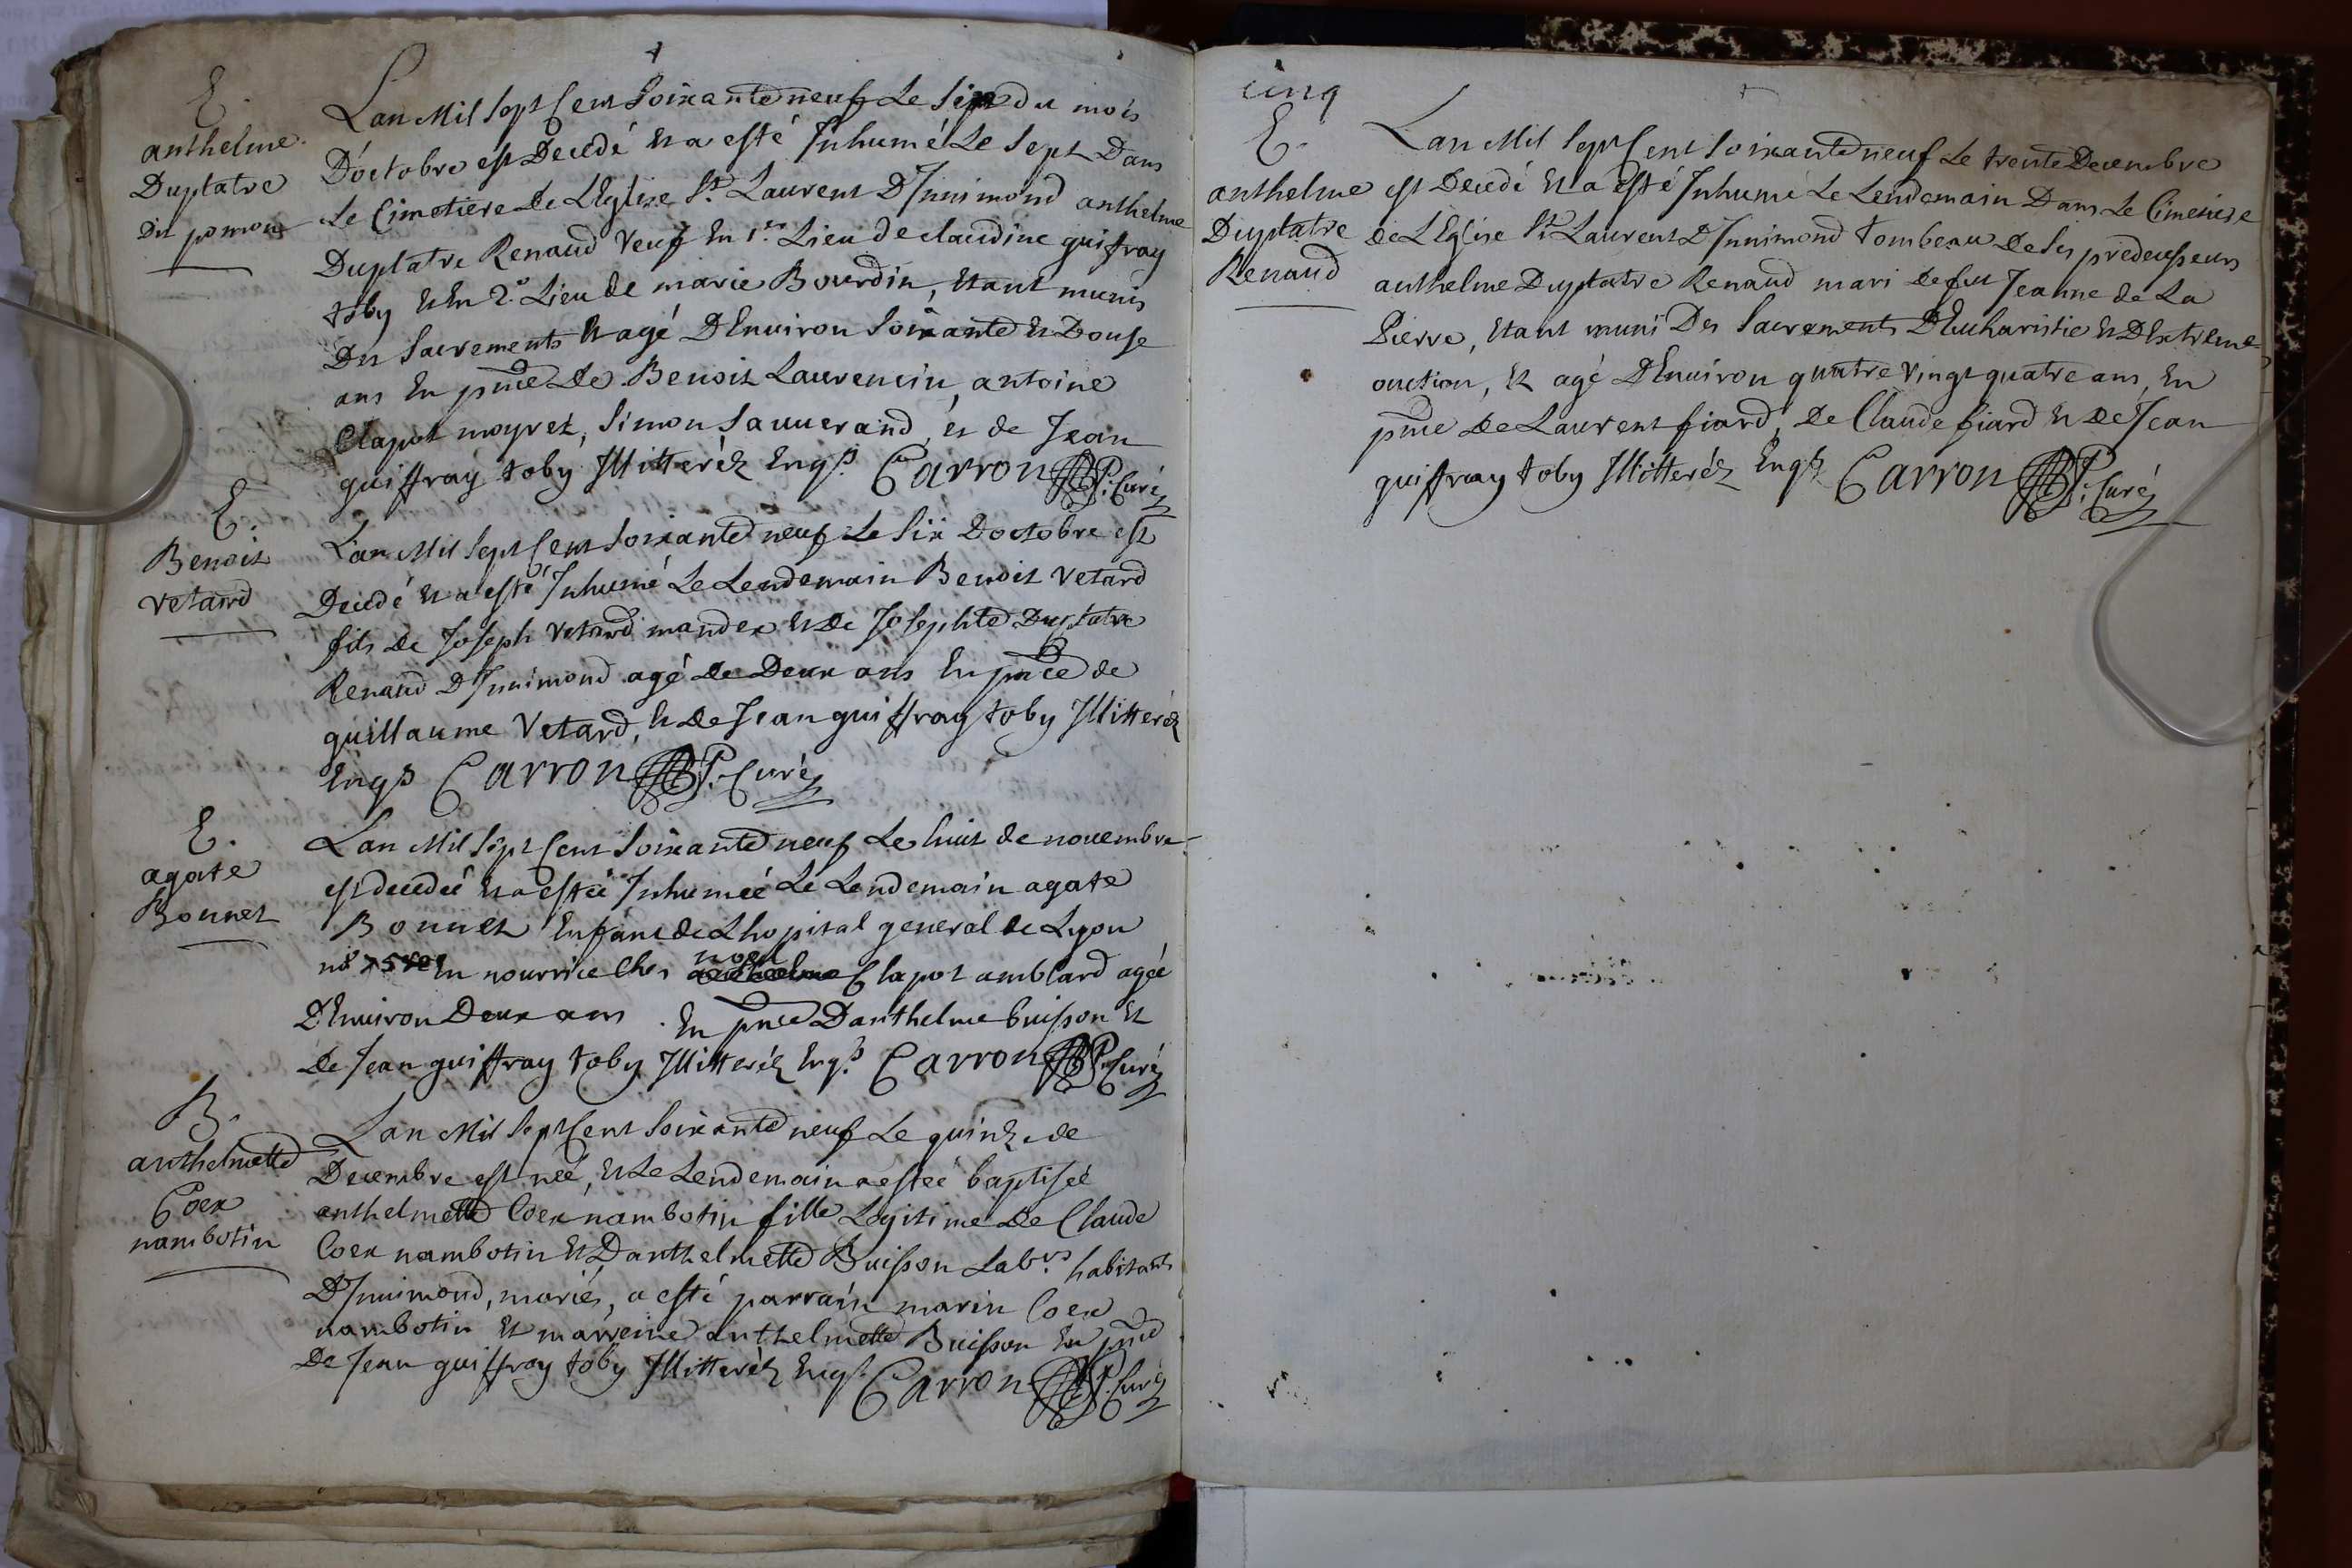 E.
anthelme
Duplatre
Dit pomon
Lan Mil sept Cent soixante neuf Le six du mois
D'octobre est Decedé Et a esté Inhumé Le sept Dans
Le Cimetiere de LEglise St. Laurent D'Innimond anthelme
Duplatre Renaud veuf En 1er. Lieu de claudine guiffray
toby Et En 2e. Lieu de marie Bourdin, Etant munis
Des sacrements Et agé D'Environ soixante Et Douse
ans En pnce de Benoit Laurencin, antoine
Clapot moyret, simon sauverand, et de Jean
guiffray toby Illitteréz Enqs. Carron P. Curé
E.
Benoit
vetard
L'an Mil sept Cent soixante neuf Le six Doctobre est
Decedé Et a esté Inhumé Le Lendemain Benoit vetard
fils de Joseph vetard mander Et De Josephte Duplatre
Renaud D'Innimond agé de Deux ans En pnce de
guillaume Vetard, Et de Jean guiffray toby Illitteréz
Enqs Carron P. Curé
E.
agate
Bonnet
Lan Mil sept Cent soixante neuf Le huit de novembre
est decedeé Et a estée Inhumeé Le Lendemain agate
Bonnet Enfant de Lhopital general de Lyon
En nourrice Ches noel Clapot amblard agée
D'Environ Deux ans. En pnce D'anthelme buisson Et
de Jean guiffray toby Illitteréz Enqs. Carron P. Curé
B.
anthelmette
Coex
nambotin
Lan Mil sept Cent soixante neuf Le quinz. de
Decembre est neé, Et Le Lendemain a esteé baptiseé
anthelmette Coex nambotin fille Legitime de Claude
Coex nambotin Et D'anthelmette Buisson Labrs. habitants
D'Innimond, mariés, a esté parrain marin Coex
nambotin Et marreine anthelmette Buisson En pnce
De Jean guiffray toby Illitteréz Enqs. Carron P. Curé
cinq
E.
anthelme
Duplatre
Renaud
Lan Mil sept Cent soixante neuf Le trente Decembre
est Decedé Et a esté Inhumé Le Lendemain Dans Le Cimetiere
de LEglise St. Laurent D'Innimond tombeau de ses predecesseurs
anthelme Duplatre Renaud mari de feu Jeanne de La
Pierre, Etant muni Des sacrements D'Eucharistie Et D'Extreme
onction, Et agé D'Environ quatre vingt quatre ans, En
pnce de Laurent fiard, De Claude fiard Et de Jean
guiffray toby Illitteréz Enqs Carron P. Curé